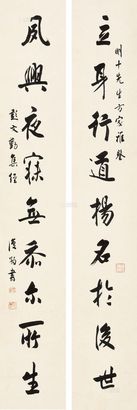 明十先生方家雅鉴
立身行道揚名於後世
夙興夜寐無忝尔所生
彭文勤集經